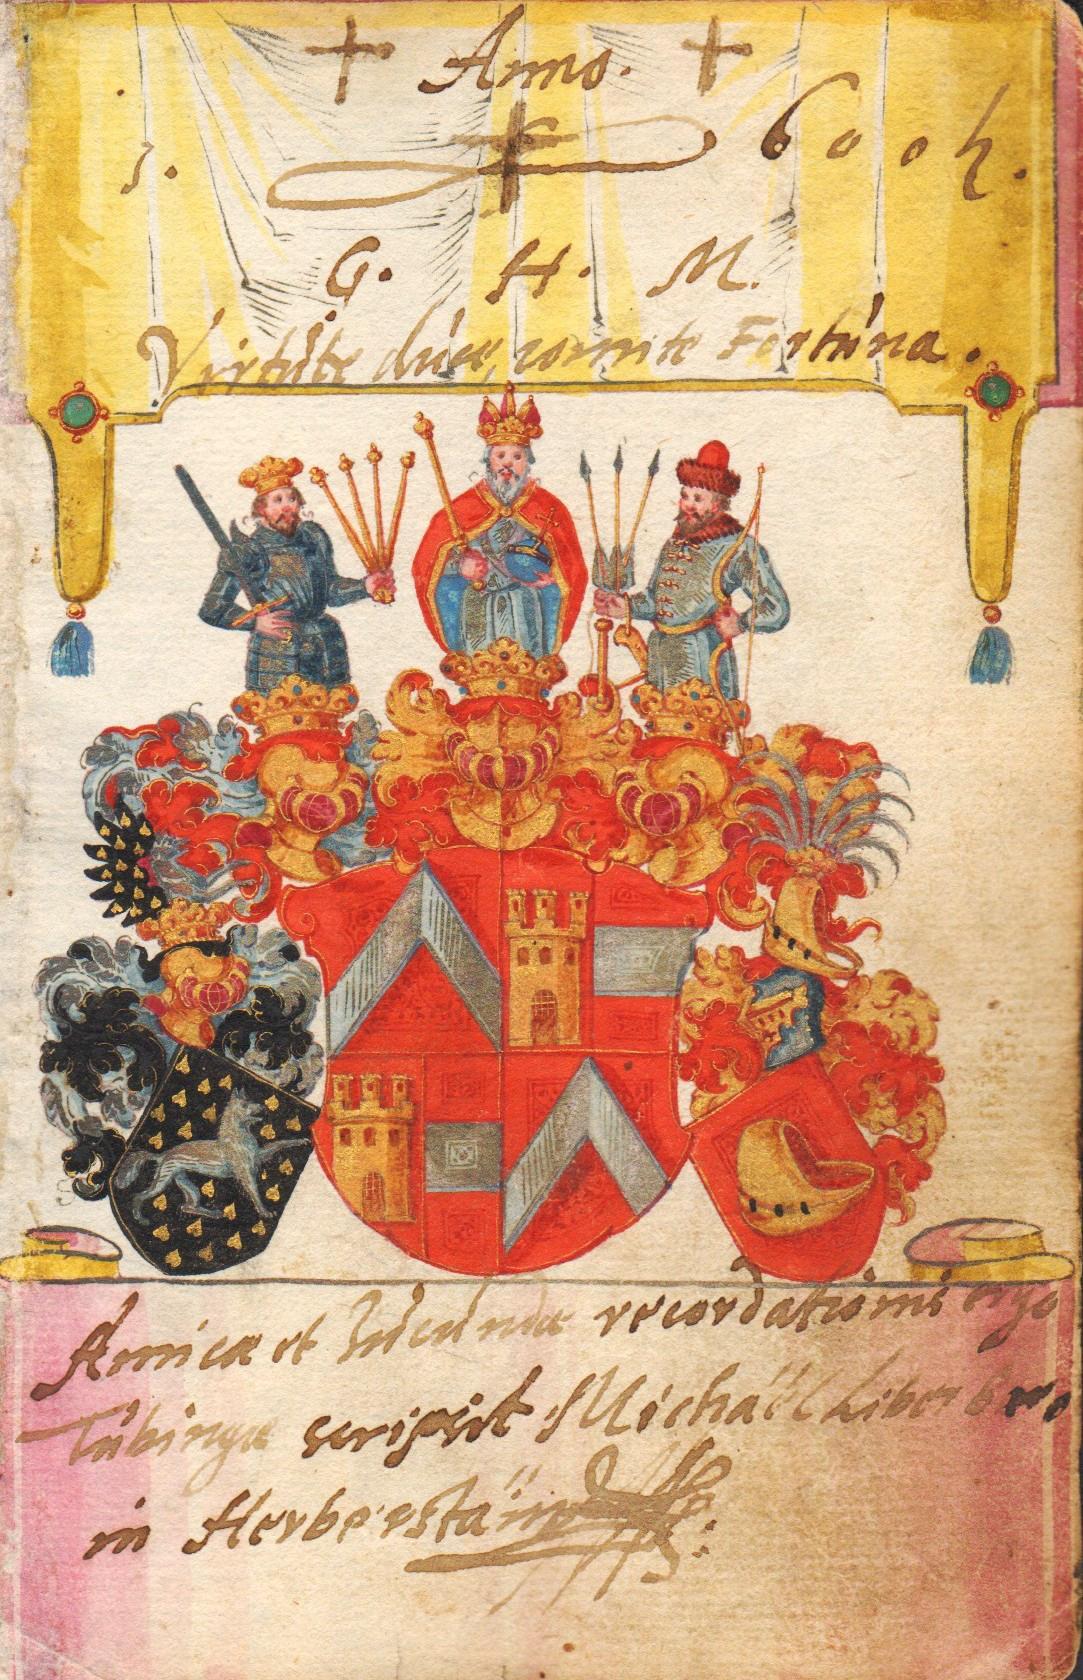 Anno.
1. 6 0 0 4.
G. H. M.
Virtute duce, comite Fortuna.
Amicæ et Iucundæ recordationis ergo
Tubingæ scripsit Michaël Liber Baro
in Herberstäin